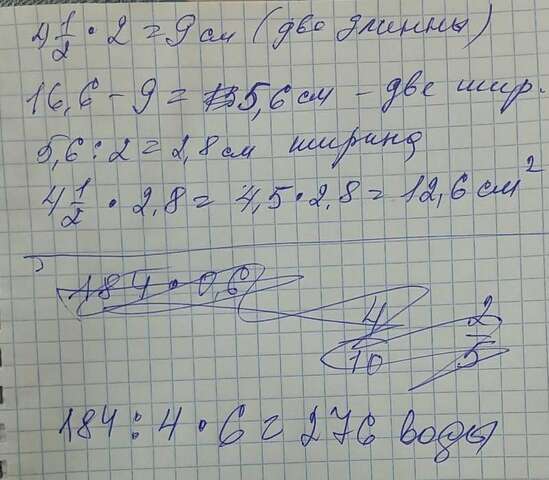 4 1/2 · 2 = 9 см (две длинны)
16,6 - 9 = 5,6 см - две шир.
5,6 : 2 = 2,8 см ширина
4 1/2 · 2,8 = 4,5 · 2,8 = 12,6 см²
184 · 0,6
4/10 2/5
184 : 4 · 6 = 276 воды